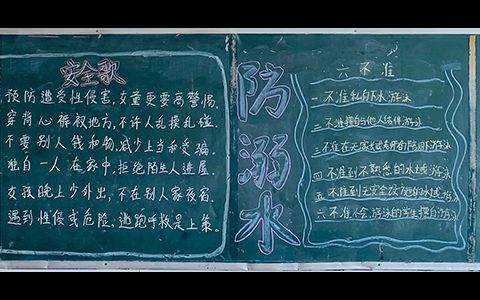 安全歌
预防遭受性侵害,女童更要高警惕。
穿背心裤衩地方,不许人乱摸乱碰。
不要别人钱和物,减少上当和受骗。
独自一人在家中,拒绝陌生人进屋。
女孩晚上少外出,不在别人家夜宿。
遇到性侵或危险,逃跑呼救是上策。
防溺水
六不准
一不准私自下水游泳
二不准擅自与他人结伴游泳
三不准在无家长或老师的陪同下游泳
四不准到不熟悉的水域游泳
五不准到无安全设施的水域游泳
六不准不会游泳的学生擅自